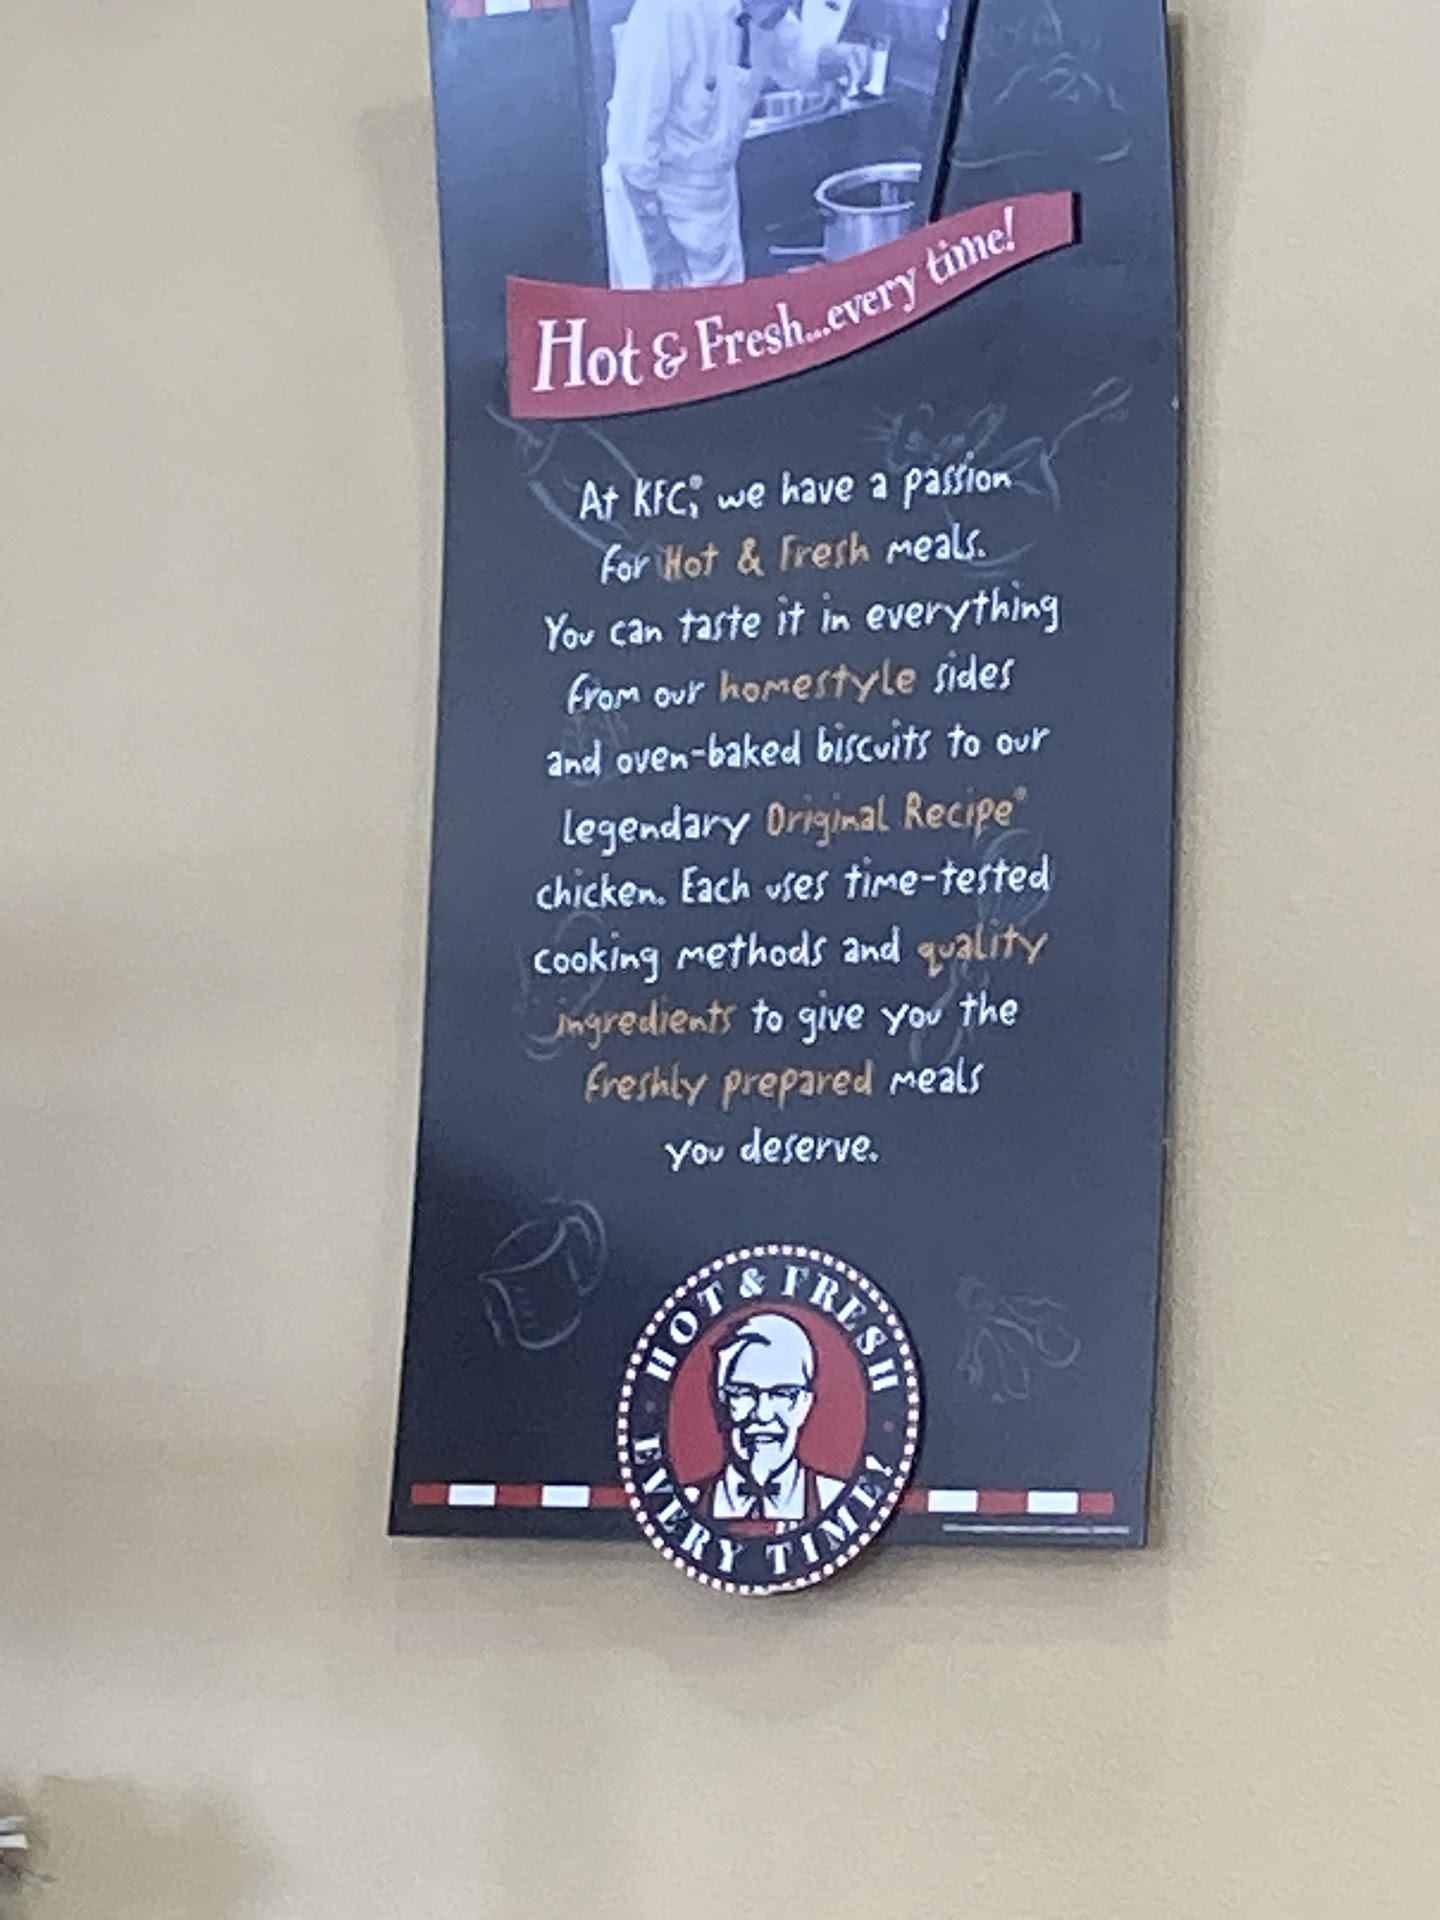 Hot & Fresh...every time!
At KFC®, we have a passion
for Hot & Fresh meals.
You can taste it in everything
from our homestyle sides
and oven-baked biscuits to our
legendary Original Recipe®
chicken. Each uses time-tested
cooking methods and quality
ingredients to give you the
freshly prepared meals
you deserve.
HOT & FRESH
EVERY TIME!